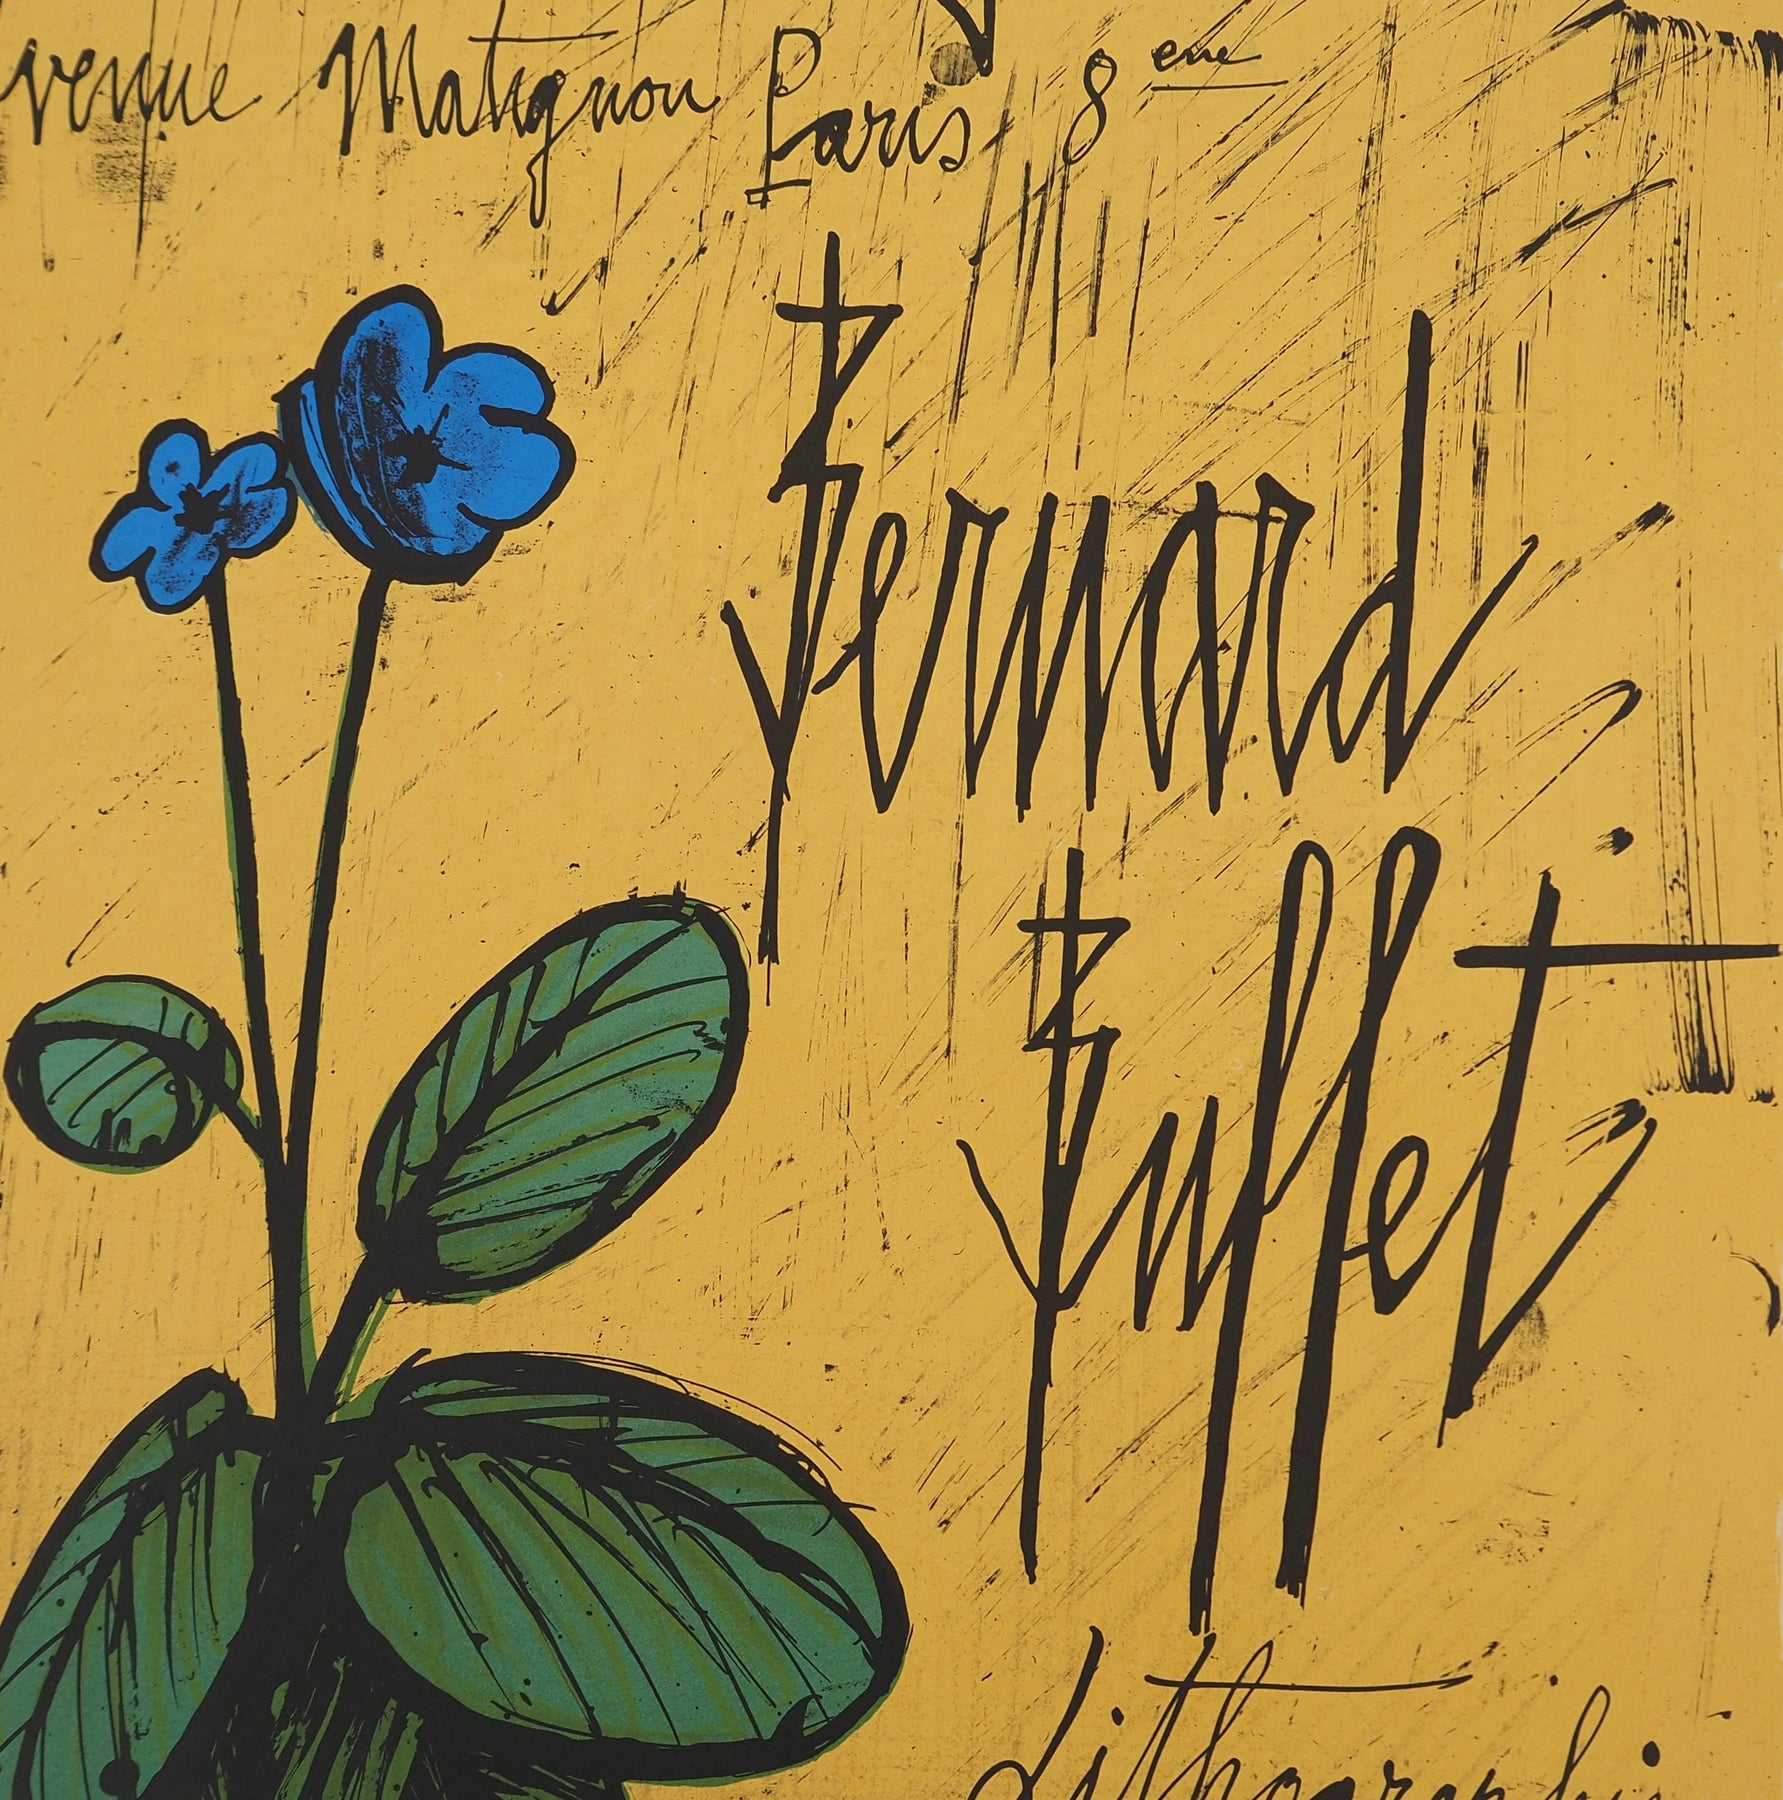 venue Matignon Paris 8eme
Bernard
Buffet
Lithographi